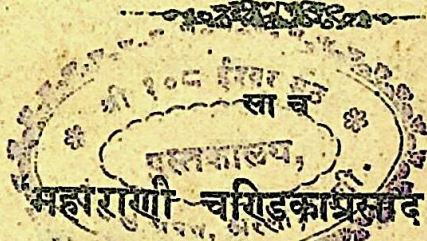 श्री १०८ ईश्वर
सा च
पुस्तकालय,
महाराणी चण्डिकाप्रसाद